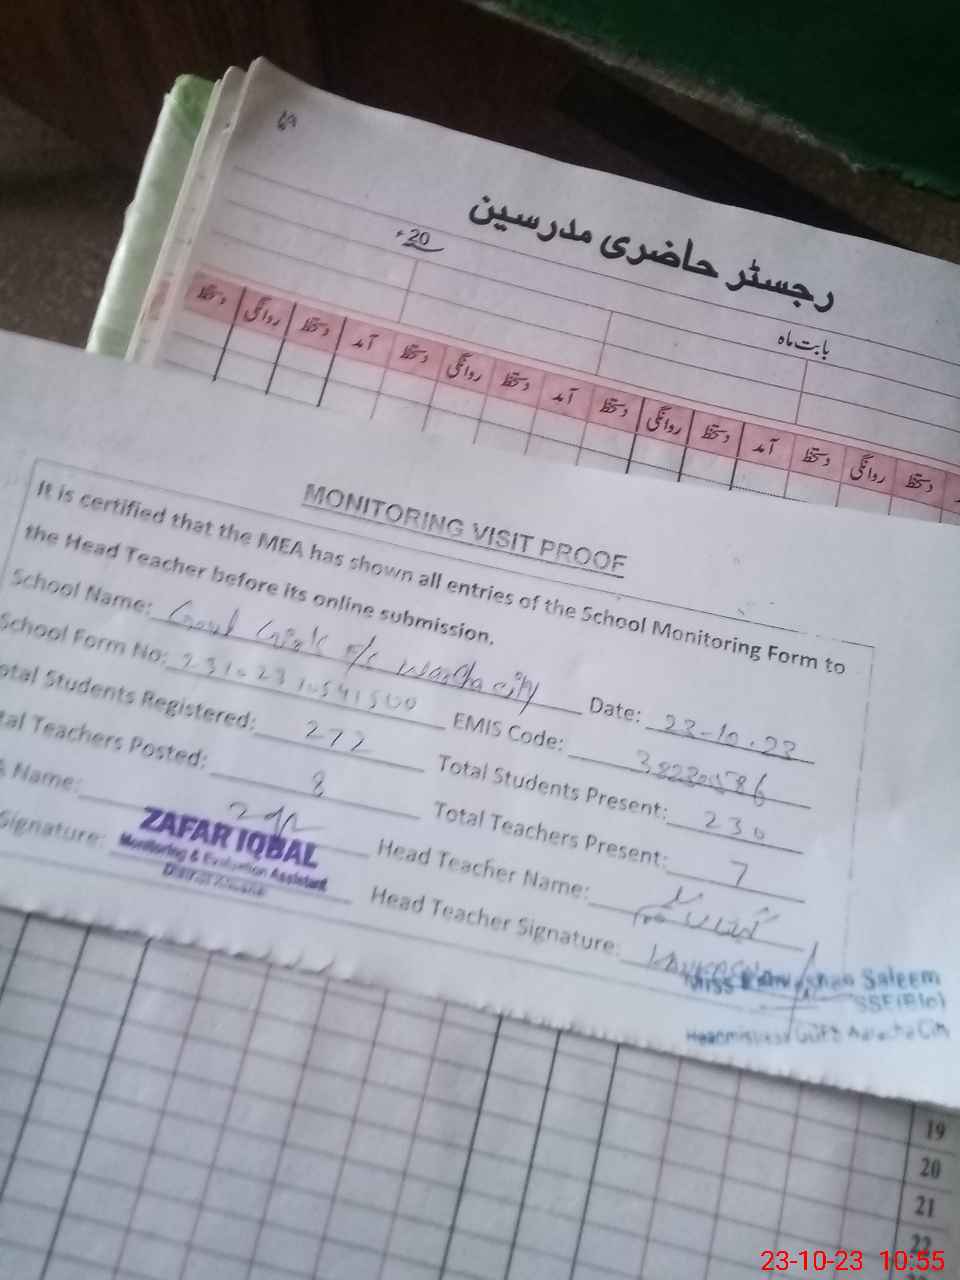 رجسٹر حاضری مدرسین
20ء
بابت ماہ
آمد دستخط روانگی دستخط آمد دستخط روانگی دستخط آمد دستخط روانگی دستخط
MONITORING VISIT PROOF
It is certified that the MEA has shown all entries of the School Monitoring Form to
the Head Teacher before its online submission.
School Name: Govt Girls E/S Warcha city Date: 23-10-23
School Form No: EMIS Code:
otal Students Registered: 272 Total Students Present: 230
tal Teachers Posted: 8 Total Teachers Present: 7
A Name: Head Teacher Name:
Signature: Head Teacher Signature:
ZAFAR IQBAL
Monitoring & Evaluation Assistant
District
Miss Saleem
SSE(Bio)
Headmistress City
19
20
21
22
23-10-23 10:55